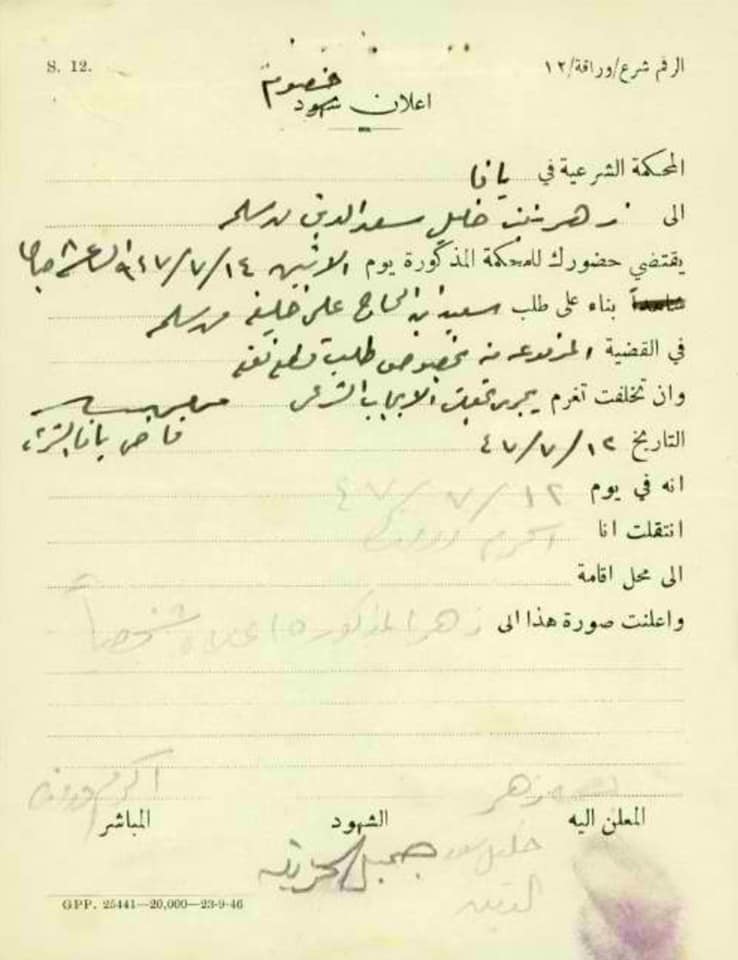 S. 12.
الرقم شرع/وراقة/١٢
خصوم
اعلان شهود
المحكمة الشرعية في يافا
الى زهر بنت خليل سعد الدين من سلمه
يقتضي حضورك للمحكمة المذكورة يوم الاثنين ١٤/٧/٩٤٧ الساعة ٨ صباحا
بناء على طلب سعيد ابن الحاج علي خليفه من سلمه
في القضية المرفوعه منه بخصوص طلب قطع نفقه
وان تخلفت تغرم يجري بحقك الايجاب الشرعي
التاريخ ١٢/٧/٤٧ قاضي يافا الشرعي
انه في يوم ١٢/٧/٤٧
انتقلت انا اكرم
الى محل اقامة
واعلنت صورة هذا الى زهر المذكوره اعلاه شخصياً
اكرم
زهر
المعلن اليه الشهود المباشر
خليل سعد
الدين
جميل
GPP. 25441—20,000—23-9-46